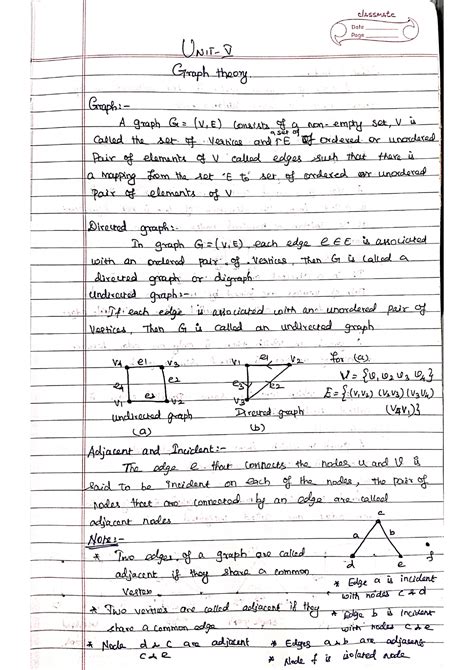 classmate
Date
Page
UNIT-V
Graph theory.
Graph:-
A graph G = (V, E) consists of a non-empty set, V is
called the set of vertices and E a set of of ordered or unordered
Pair of elements of V called edges such that there is
a mapping from the set 'E to' set of ordered or unordered
pair of elements of V
Directed graph:-
In graph G = (V, E) each edge e ∈ E is associated
with an ordered pair of vertices, then G is called a
directed graph or digraph
Undirected graph:-
If each edge is associated with an unordered pair of
vertices, Then G is called an undirected graph
v4 e1 v3
e4 e2
v1 e3 v2
undirected graph
(a)
v1 e1 v2
e3 e2
v3
Directed graph
(b)
for (a)
V = {v1 v2 v3 v4}
E = {(v1v2) (v2v3) (v3v4)
(v4v1)}
Adjacent and Incident:-
The edge e that connects the nodes u and v is
said to be incident on each of the nodes, the pair of
nodes that are connected by an edge are called
adjacent nodes
Note:-
* Two edges of a graph are called
adjacent if they share a common
vertex
* Two vertices are called adjacent if they
share a common edge
* Node d & c are adjacent
c & e
c
a b
d e f
* Edge a is incident
with nodes c & d
* Edge b is incident
with nodes c & e
* Edges a & b are adjacent
* Node f is isolated node